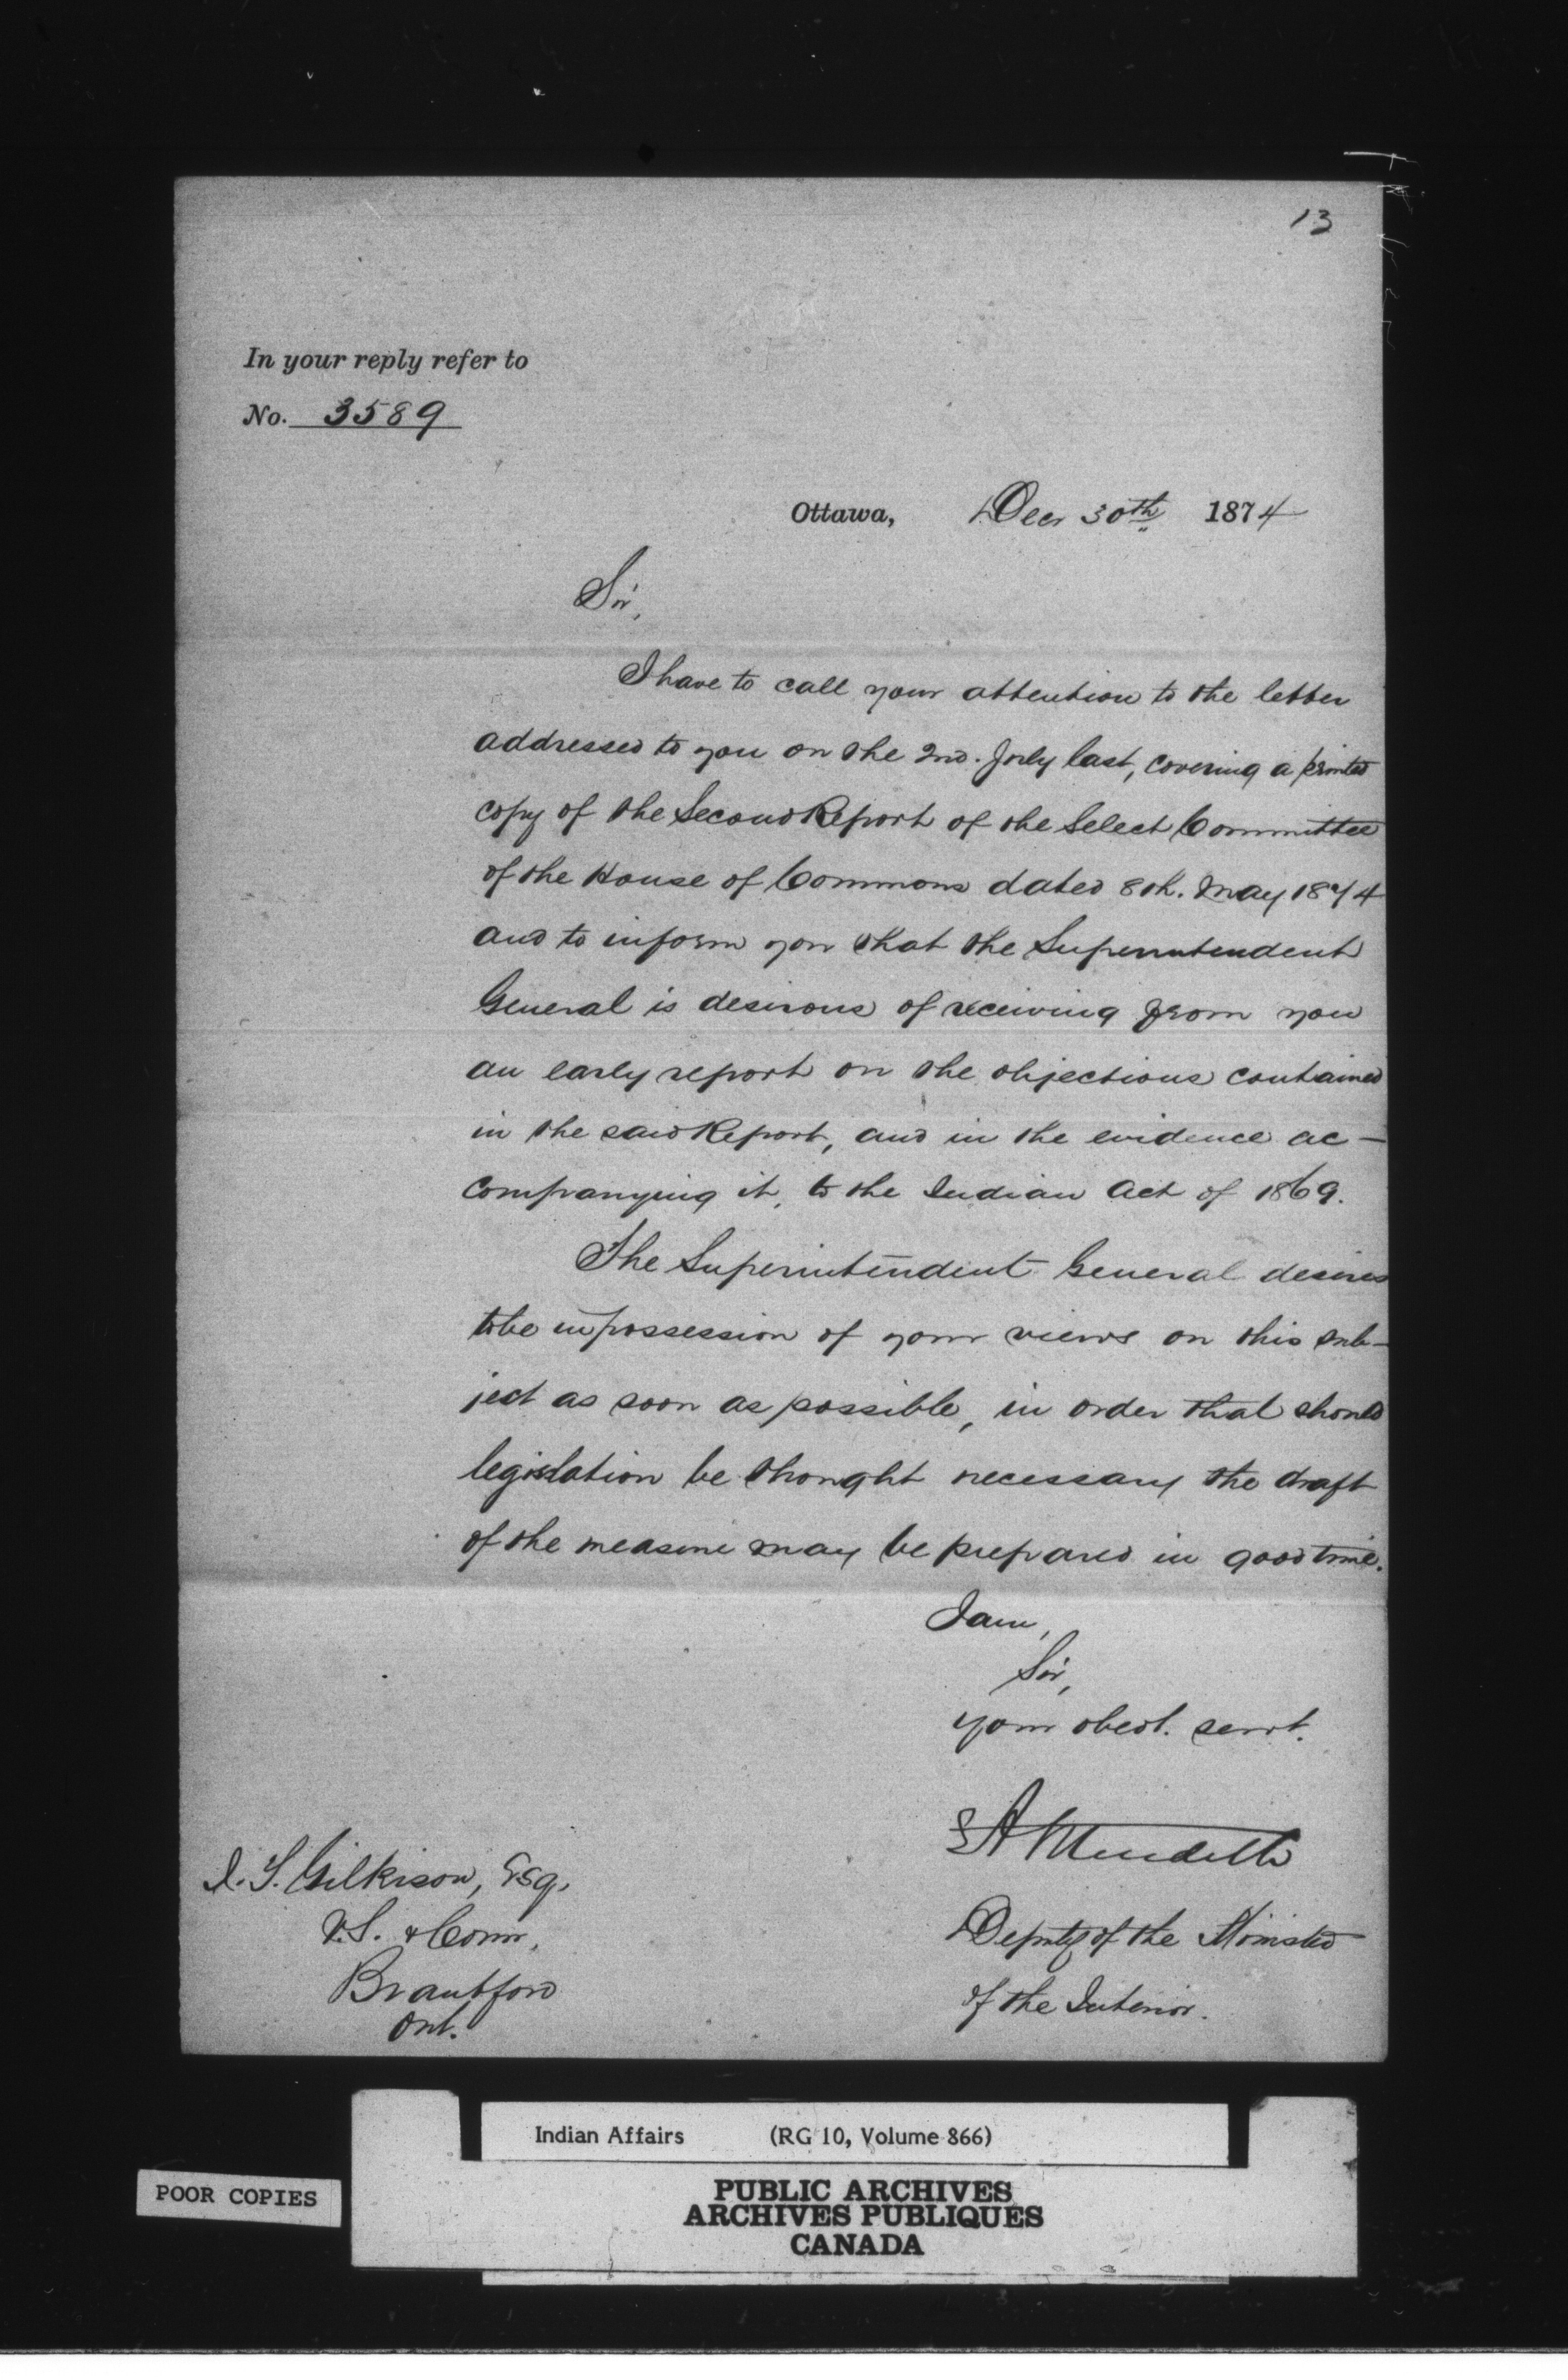 13
In your reply refer to
No. 3589
Ottawa, Decr 30th 1874
Sir,
I have to call your attention to the letter
addressed to you on the 2nd. July last, covering a printed
copy of the Second Report of the Select Committee
of the House of Commons dated 8th. May 1874
and to inform you that the Superintendent
General is desirous of receiving from you
an early report on the objections contained
in the said Report, and in the evidence ac-
companying it, to the Indian Act of 1869.
The Superintendent General desires
to be in possession of your views on this sub-
ject as soon as possible, in order that should
legislation be thought necessary the draft
of the measure may be prepared in good time.
I am,
Sir,
Your obedt. servt.
E A Meredith
Deputy of the Minister
of the Interior.
J. T. Gilkison, Esq,
V.S. & Comr,
Brantford
Ont.
Indian Affairs (RG 10, Volume 866)
POOR COPIES
PUBLIC ARCHIVES
ARCHIVES PUBLIQUES
CANADA